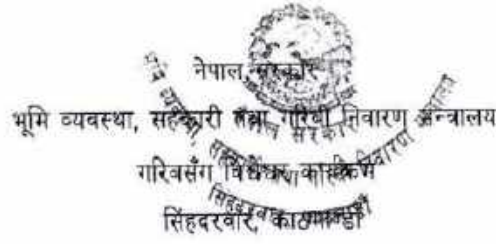 नेपाल सरकार
भूमि व्यवस्था, सहकारी तथा गरिबी निवारण मन्त्रालय
गरिवसँग विश्वेश्वर कार्यक्रम
सिंहदरवार, काठमाण्डौ